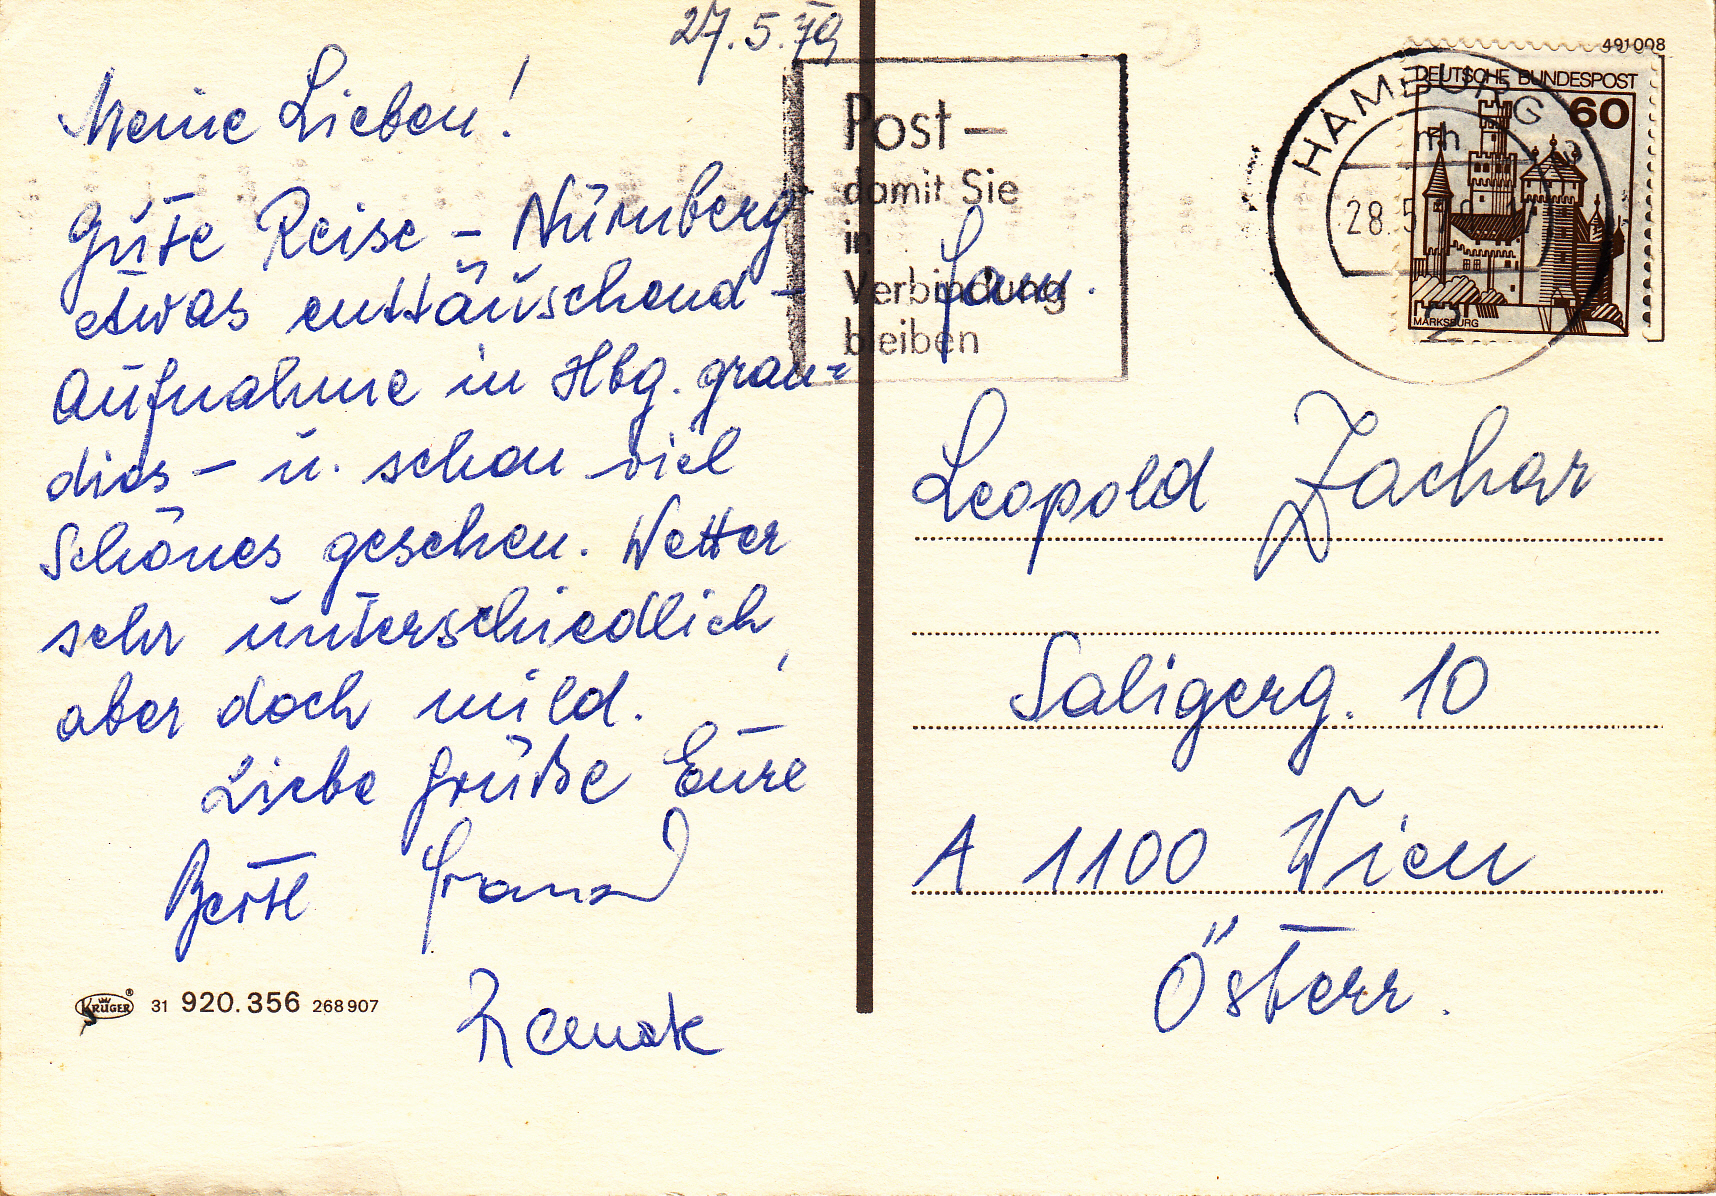 27.5.79
Meine Lieben!
Gute Reise – Nürnberg
etwas enttäuschend –
Aufnahme in Hbg. gran=
dios – u. schon viel
Schönes gesehen. Wetter
sehr unterschiedlich,
aber doch mild.
Liebe Grüße Eure
Bertl Franz
KRÜGER ® 31 920.356 268 907
Post –
damit Sie
in
Verbindung
bleiben
491 008
DEUTSCHE BUNDESPOST
60
MARKSBURG
HAMBURG
mh
28.5
Fam.
Leopold Zachar
Saligerg. 10
A 1100 Wien
Österr.